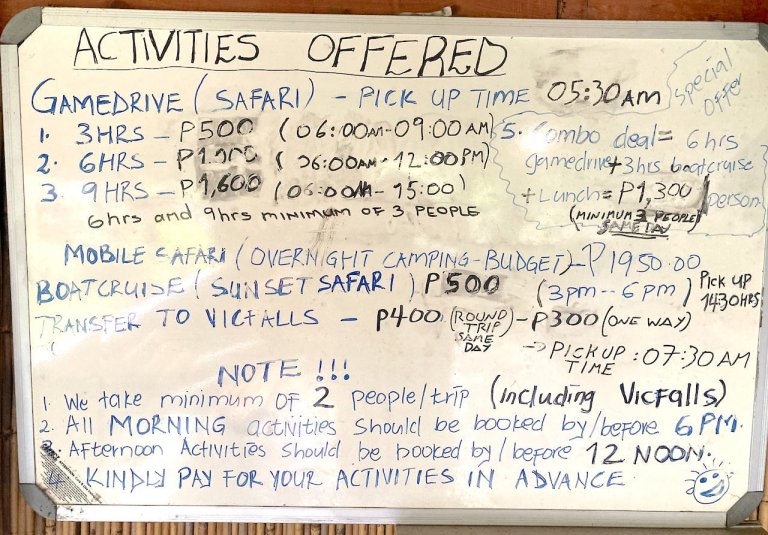 ACTIVITIES OFFERED
GAMEDRIVE (SAFARI) - PICK UP TIME 05:30AM
Special Offer
1. 3HRS - P500 (06:00AM-09:00AM)
2. 6HRS - (06:00AM-12:00PM)
3. 9HRS - P1,600 (06:00AM - 15:00)
6hrs and 9hrs MINIMUM OF 3 PEOPLE
5. Combo deal = 6hrs
gamedrive + 3hrs boatcruise
+ Lunch = P1,300/person
(MINIMUM 3 PEOPLE)
SAME DAY
MOBILE SAFARI (OVERNIGHT CAMPING-BUDGET) - P1950.00
BOATCRUISE (SUNSET SAFARI) P500 (3pm--6pm) PICK UP 1430HRS
TRANSFER TO VICFALLS - P400 (ROUND TRIP SAME DAY) - P300 (ONE WAY)
-> PICK UP TIME : 07:30AM
NOTE !!!
1. We take minimum OF 2 people/trip (including VicFalls)
2. All MORNING activities should be booked by/before 6PM.
3. Afternoon Activities should be booked by/before 12 NOON.
4. KINDLY PAY FOR YOUR ACTIVITIES IN ADVANCE